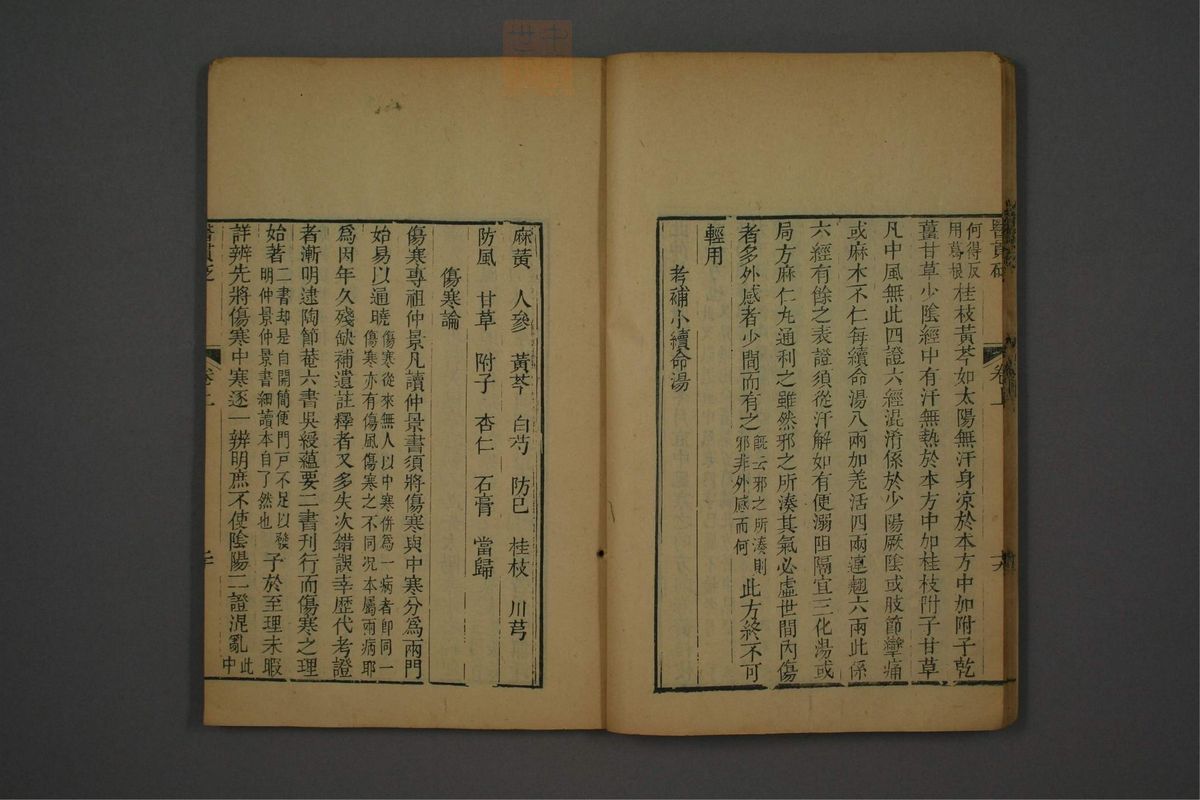 醫貫砭
卷上
何得反用葛根桂枝黃芩如太陽無汗身涼於本方中加附子乾
薑甘草少陰經中有汗無熱於本方中加桂枝附子甘草
凡中風無此四證六經混淆係於少陽厥陰或肢節攣痛
或麻木不仁每續命湯八兩加羌活四兩連翹六兩此係
六經有餘之表證須從汗解如有便溺阻隔宜三化湯或
局方麻仁丸通利之雖然邪之所湊其氣必虛世間內傷
者多外感者少間而有之既云邪之所湊則邪非外感而何此方終不可
輕用
考補小續命湯
麻黃 人參 黃芩 白芍 防巳 桂枝 川芎
防風 甘草 附子 杏仁 石膏 當歸
傷寒論
傷寒專祖仲景凡讀仲景書須將傷寒與中寒分為兩門
始易以通曉傷寒從來無人以中寒併為一病者卽同一傷寒亦有傷風傷寒之不同況本屬兩病耶
為因年久殘缺補遺註釋者又多失次錯誤幸歷代考證
者漸明逮陶節菴六書吳綬蘊要二書刊行而傷寒之理
始著二書却是自開簡便門戶不足以發明仲景仲景書細讀本自了然也子於至理未暇
詳辨先將傷寒中寒逐一辨明庶不使陰陽二證混亂此中